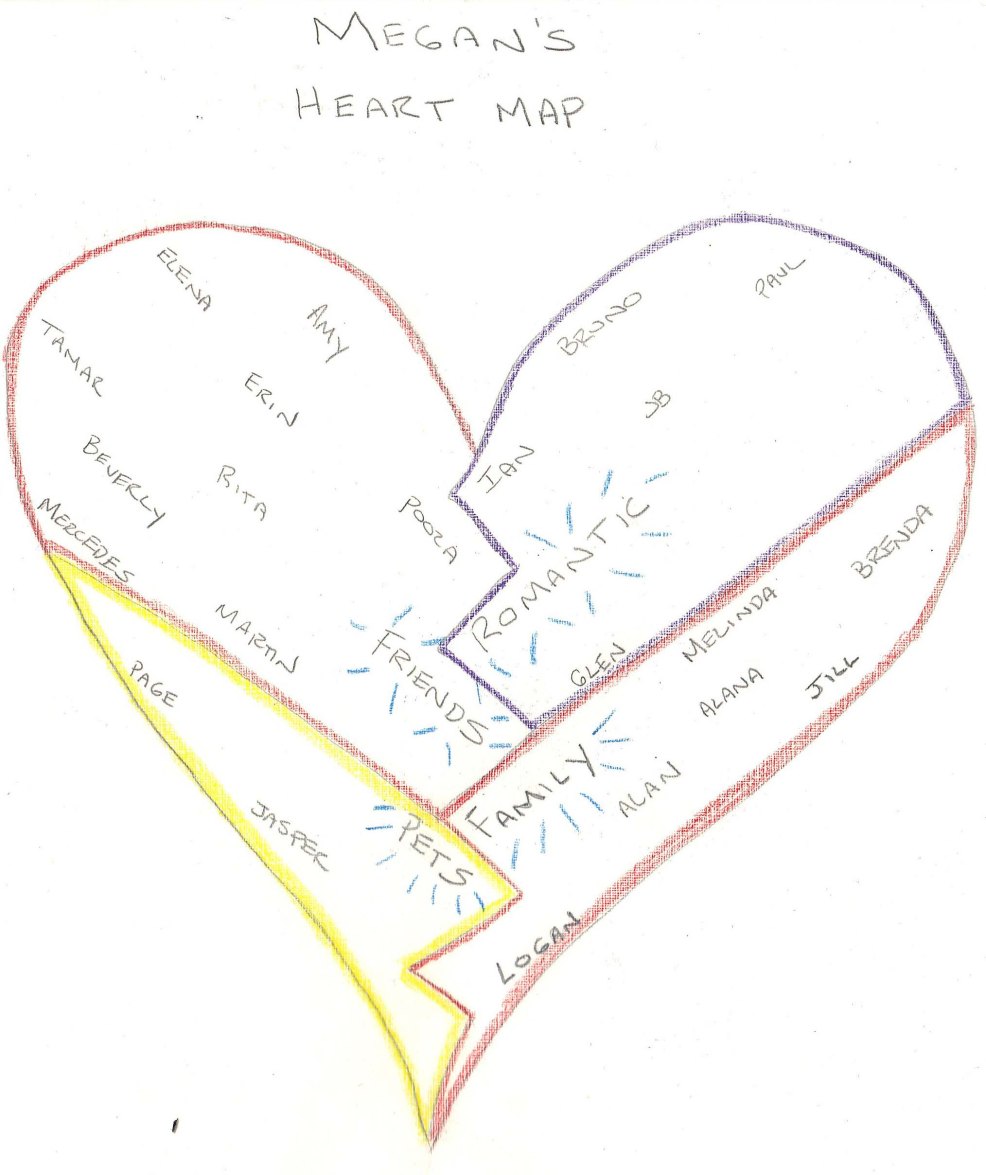 MEGAN'S
HEART MAP
ELENA
AMY
TAMAR
ERIN
BEVERLY
RITA
POOZA
MERCEDES
MARTIN
FRIENDS
BRUNO
PAUL
JB
IAN
ROMANTIC
GLEN
MELINDA
BRENDA
ALANA
JILL
FAMILY
ALAN
LOGAN
PAGE
JASPER
PETS